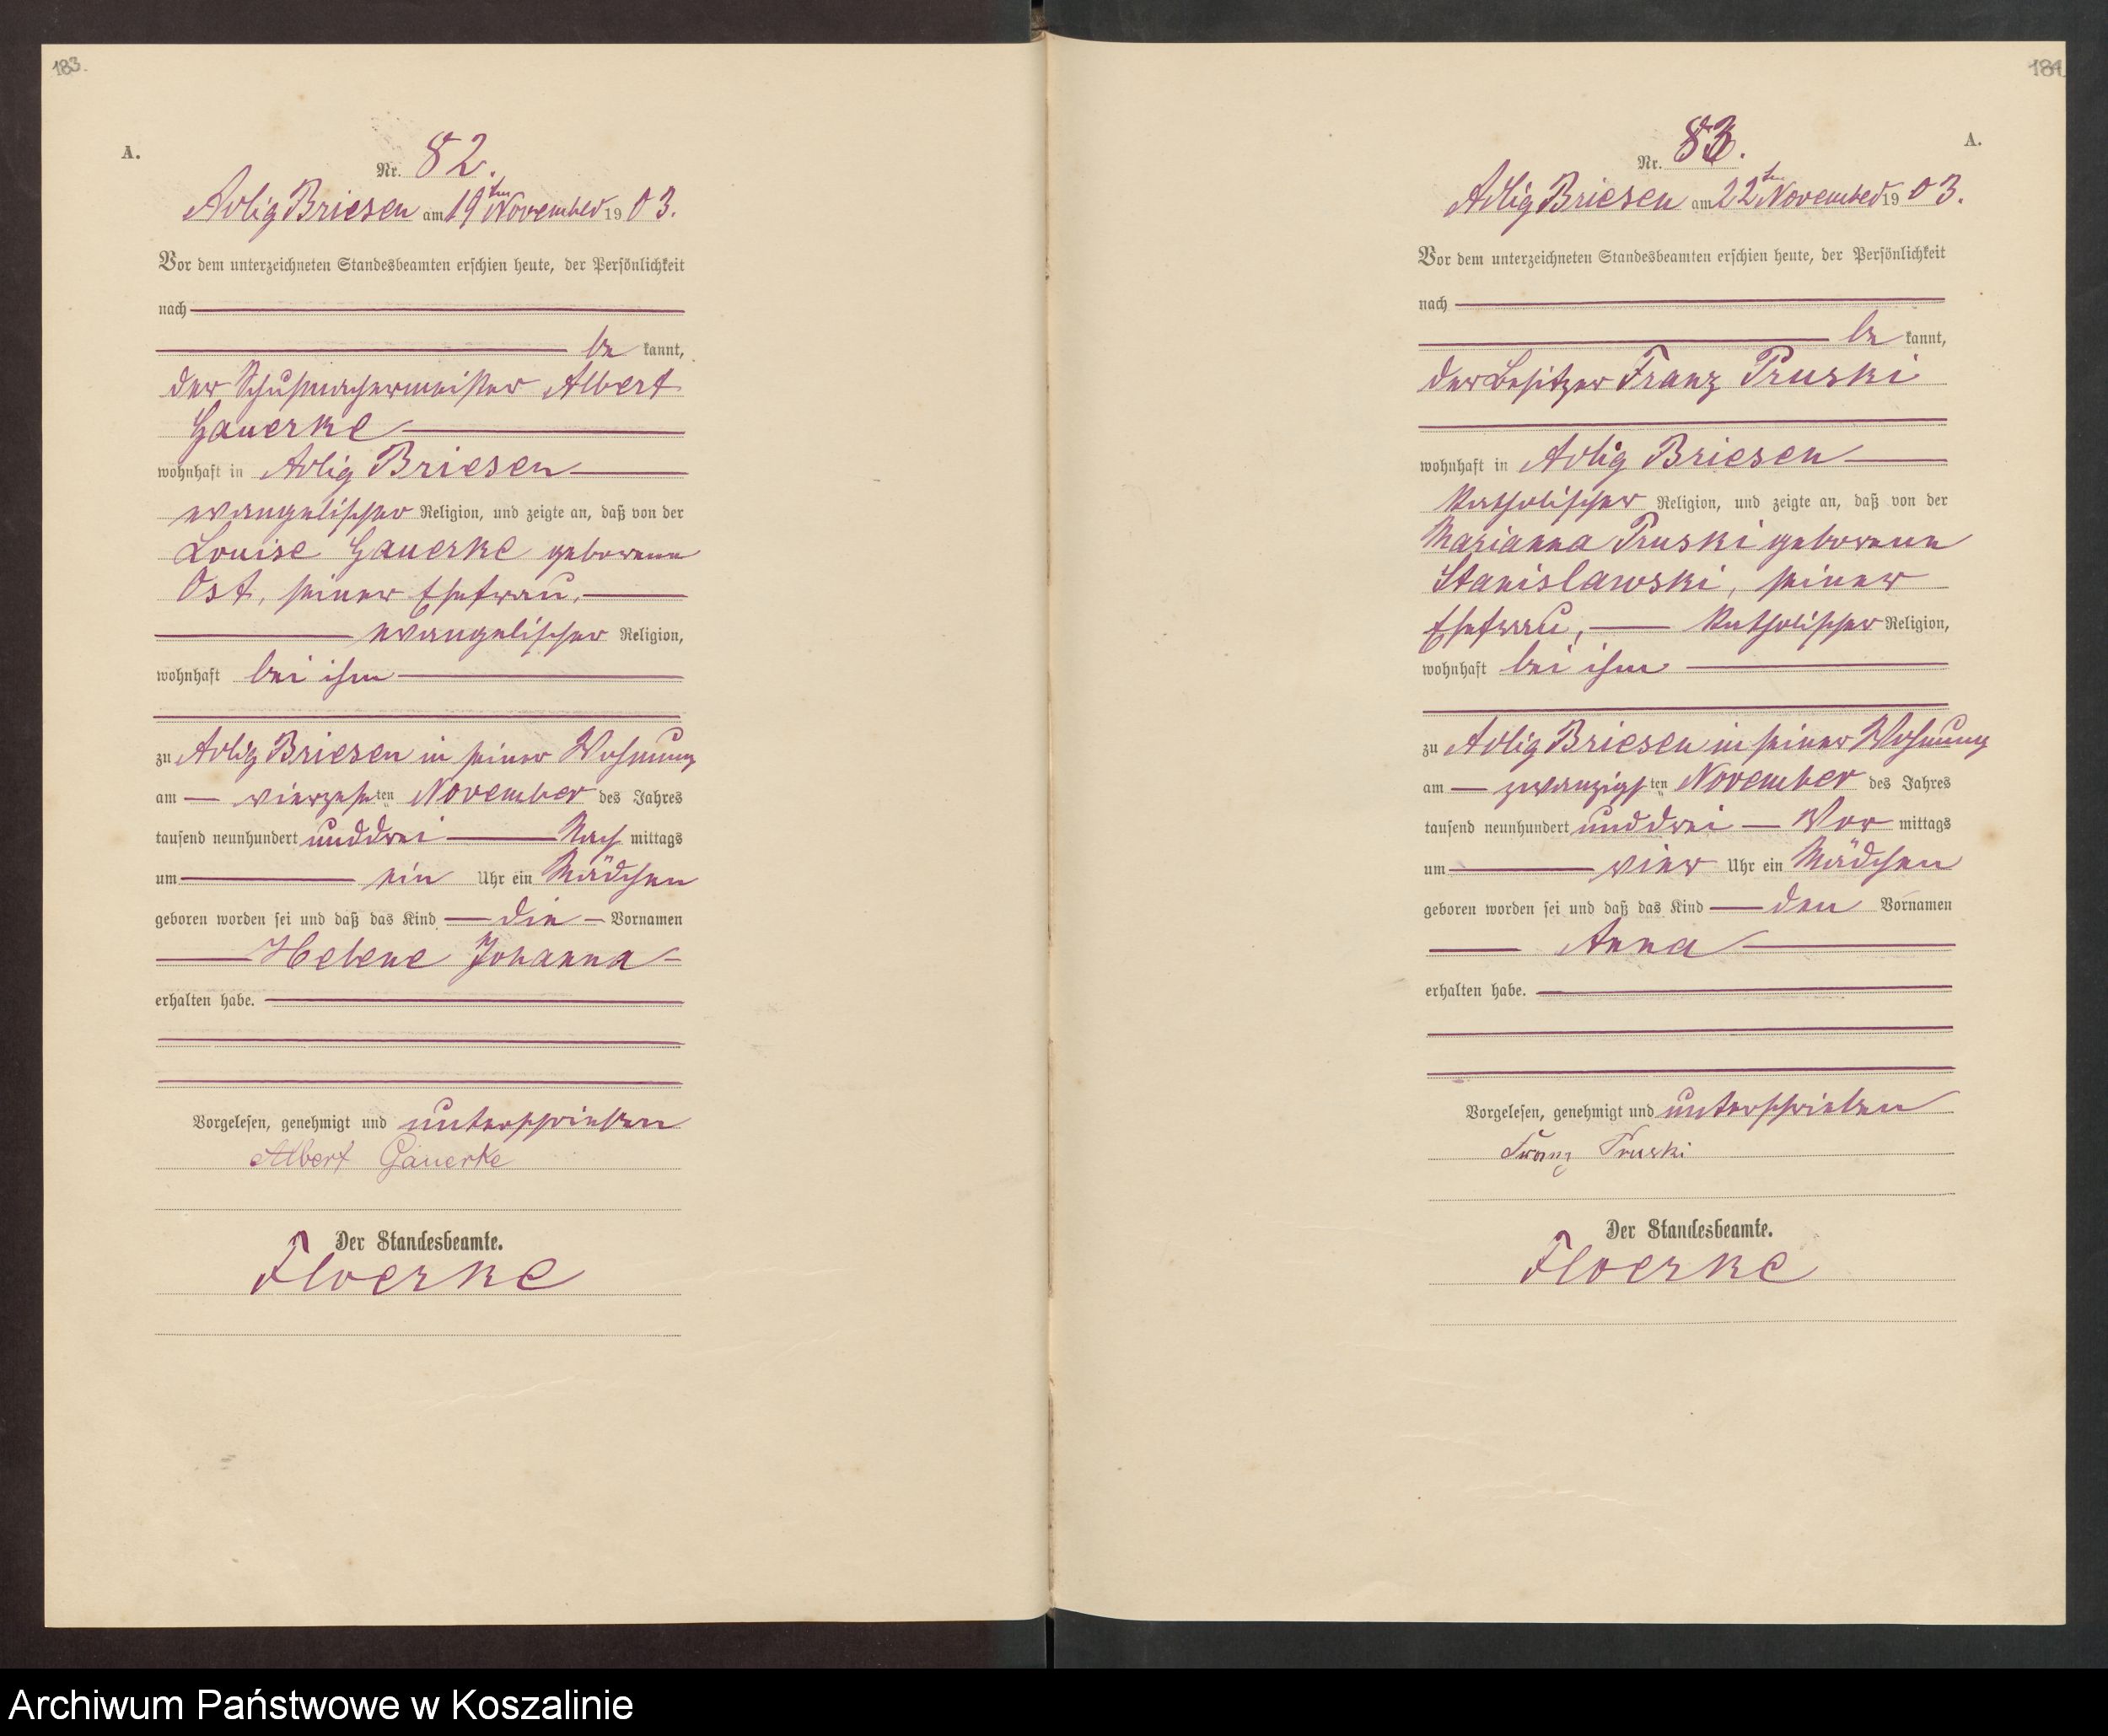 183.
A.
Nr. 82.
Adlig Briesen am 19ten November 1903.
Vor dem unterzeichneten Standesbeamten erschien heute, der Persönlichkeit
nach
be kannt,
der Schuhmachermeister Albert
Gauerke
wohnhaft in Adlig Briesen
evangelischer Religion, und zeigte an, daß von der
Louise Gauerke geborene
Ost, seiner Ehefrau,
evangelischer Religion,
wohnhaft bei ihm
zu Adlig Briesen in seiner Wohnung
am vierzehnten November des Jahres
tausend neunhundert unddrei Nach mittags
um ein Uhr ein Mädchen
geboren worden sei und daß das Kind die Vornamen
Helene Johanna
erhalten habe.
Vorgelesen, genehmigt und unterschrieben
Albert Gauerke
Der Standesbeamte.
Floerke
181.
A.
Nr. 83.
Adlig Briesen am 22ten November 1903.
Vor dem unterzeichneten Standesbeamten erschien heute, der Persönlichkeit
nach
be kannt,
der Besitzer Franz Pruski
wohnhaft in Adlig Briesen
katholischer Religion, und zeigte an, daß von der
Marianna Pruski geborene
Stanislawski, seiner
Ehefrau, katholischer Religion,
wohnhaft bei ihm
zu Adlig Briesen in seiner Wohnung
am zwanzigsten November des Jahres
tausend neunhundert unddrei Vor mittags
um vier Uhr ein Mädchen
geboren worden sei und daß das Kind den Vornamen
Anna
erhalten habe.
Vorgelesen, genehmigt und unterschrieben
Franz Pruski
Der Standesbeamte.
Floerke
Archiwum Państwowe w Koszalinie